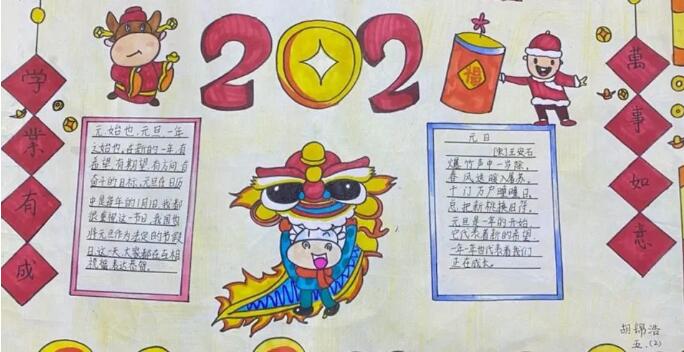 学業有成
202
福
萬事如意
元,始也,元旦,一年
之始也,在新的一年有
希望有期望有方向有
奋斗的目标,元旦在日历
中是每年的1月1日,我都
很重视这一节日,我国也
将元旦作为法定的节假
日这一天,大家都在互相
祝福,表达恭贺.
元日
[宋]王安石
爆竹声中一岁除,
春风送暖入屠苏,
千门万户曈曈日,
总把新桃换旧符,
元旦是一年的开始
它代表着新的希望.
一年一年也代表着我们
正在成长.
胡锦浩
五.(2)